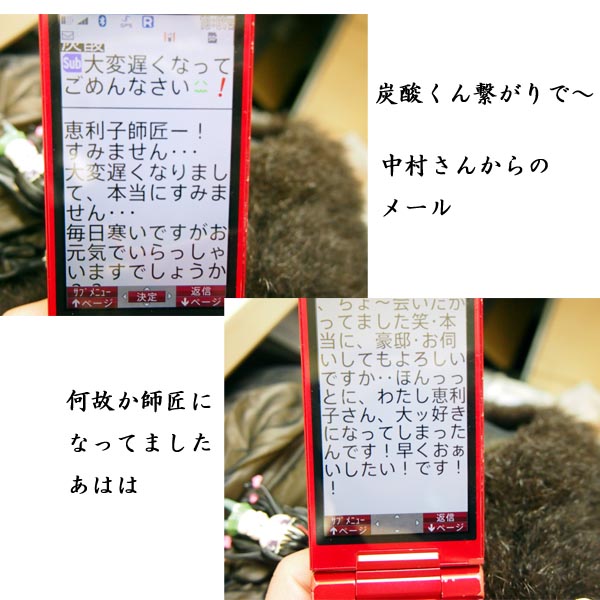 炭酸くん繋がりで～
中村さんからの
メール
Sub大変遅くなって
ごめんなさい
恵利子師匠ー！
すみません・・・
大変遅くなりまし
て、本当にすみま
せん・・・
毎日寒いですがお
元気でいらっしゃ
いますでしょうか
ｻﾌﾞﾒﾆｭｰ 決定 返信
↑ページ ↓ページ
何故か師匠に
なってました
あはは
、ちょ～会いたか
ってました笑・本
当に、豪邸・お伺
いしてもよろしい
ですか・・ほんっっ
とに、わたし恵利
子さん、大ッ好き
になってしまった
んです！早くおぁ
いしたい！です！
！
ｻﾌﾞﾒﾆｭｰ 返信
↑ページ ↓ページ